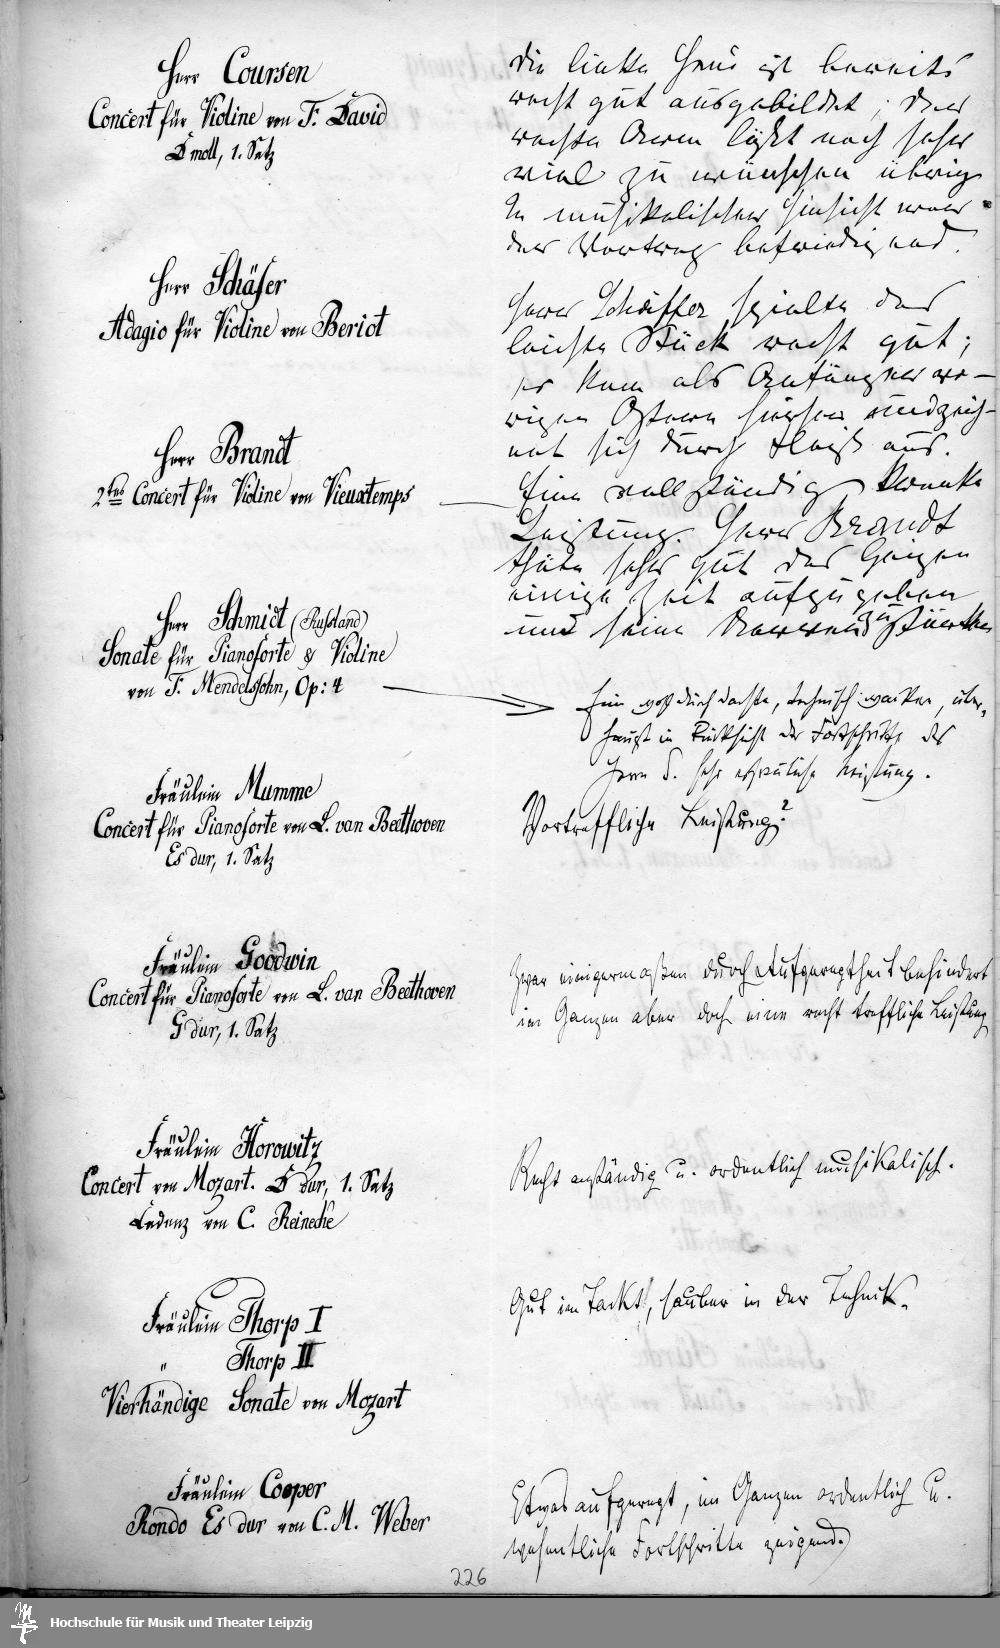 Herr Coursen
Concert für Violine von F. David
D moll, 1. Satz
Die linke Hand ist bereits
recht gut ausgebildet; der
rechte Arm läßt noch sehr
viel zu wünschen übrig
In musikalischer Hinsicht war
der Vortrag befriedigend.
Herr Schäfer
Adagio für Violine von Beriot
Herr Schäffer spielte das
leichte Stück recht gut;
er kam als Anfänger vo-
rigen Ostern hierher und zeich-
net sich durch Fleiß aus.
Herr Brandt
2tes Concert für Violine von Vieuxtemps
Eine vollständig kranke
Leistung. Herr Brandt
thäte sehr gut das Geigen
einige Zeit aufzugeben
und seine Nerven zu stärken
Herr Schmidt (Russland)
Sonate für Pianoforte & Violine
von F. Mendelssohn, Op: 4
Eine durchdachte, technisch wackere, über-
haupt in Rücksicht der Fortschritte des
Herrn S. sehr erfreuliche Leistung.
Fräulein Mumme
Concert für Pianoforte von L. van Beethoven
Es dur, 1. Satz
Vortreffliche Leistung.
Fräulein Goodwin
Concert für Pianoforte von L. van Beethoven
G dur, 1. Satz
Zwar einigermaßen durch Aufgeregtheit behindert
im Ganzen aber doch eine recht treffliche Leistung
Fräulein Horowitz
Concert von Mozart. D dur, 1. Satz
Cadenz von C. Reinecke
Recht anständig u. ordentlich musikalisch.
Fräulein Thorp I
" Thorp II
Vierhändige Sonate von Mozart
Gut im Tackt, sauber in der Technik.
Fräulein Cooper
Rondo Es dur von C. M. Weber
Etwas aufgeregt, im Ganzen ordentlich u.
wesentliche Fortschritte zeigend.
226
Hochschule für Musik und Theater Leipzig